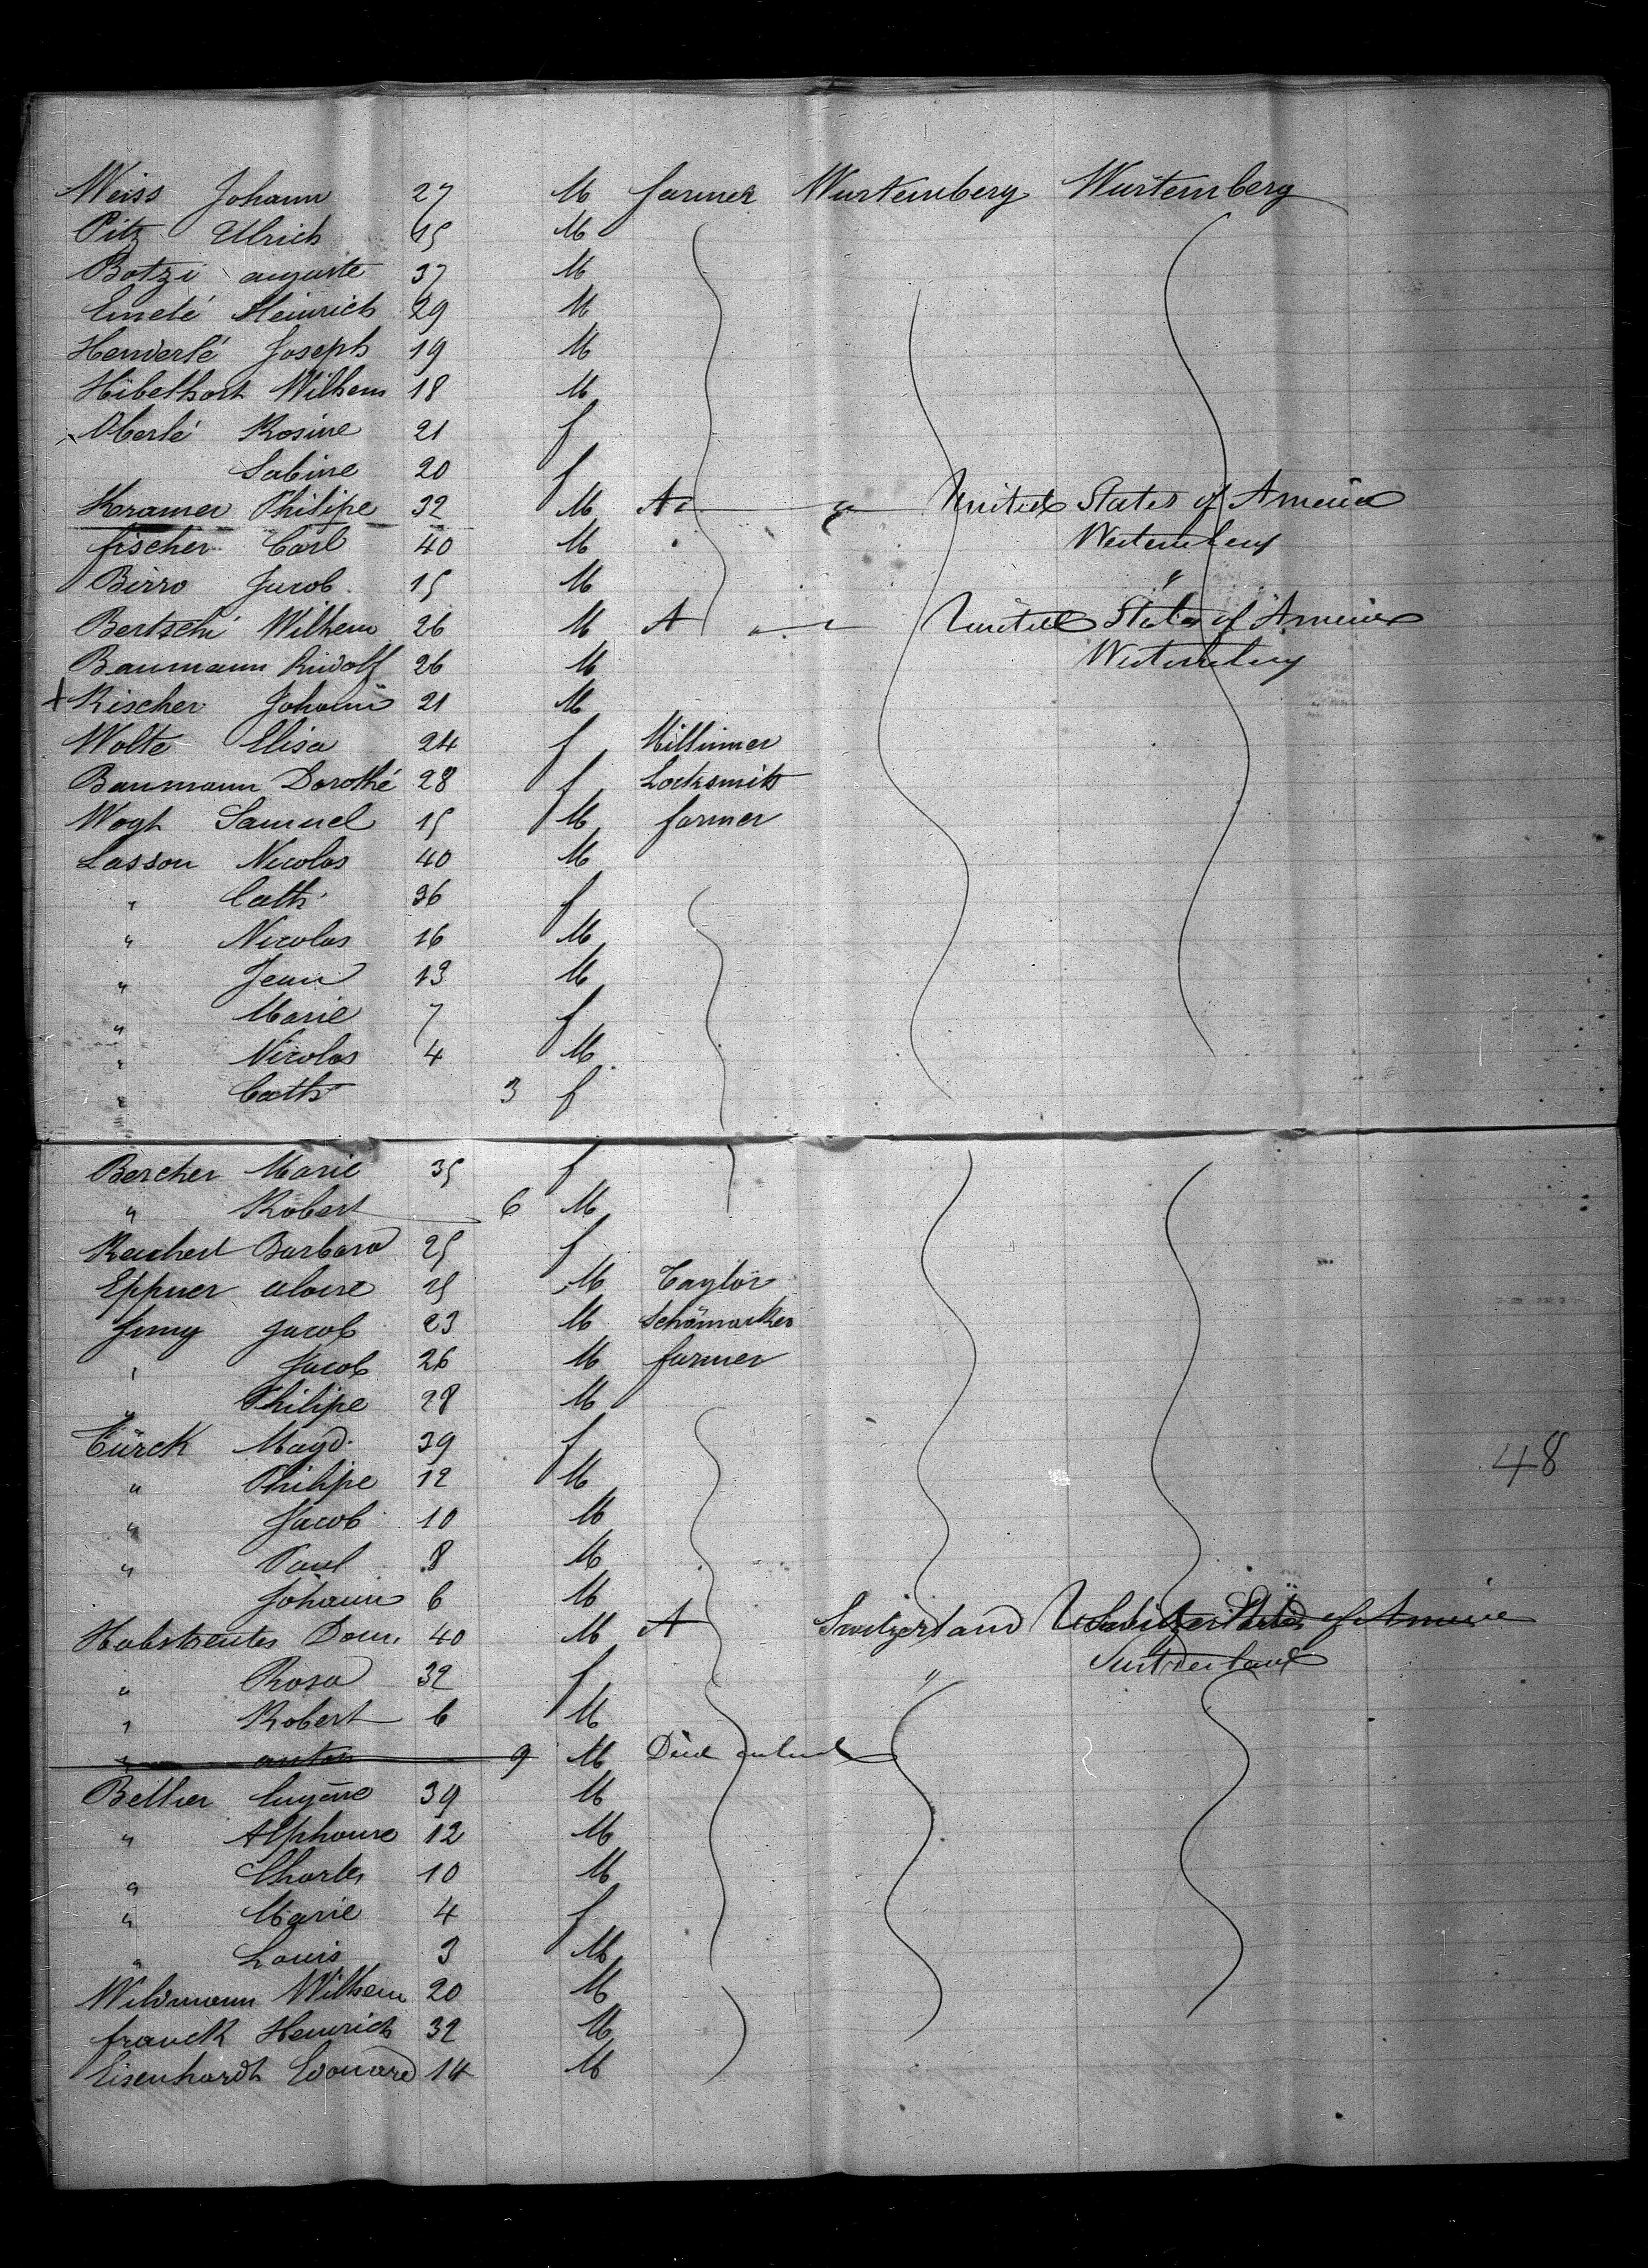 Weiss Johann 27 M farmer Wurtemberg Wurtemberg
Pitz Ulrich 45 M
Botzi auguste 37 M
Heinrich 29 M
Henderlé Joseph 19 M
Hibelhort Wilhem 18 M
Oberlé Rosine 21 f
Sabine 20 f
Kramer Philipe 32 M A United States of America
fischer Carl 40 M Wurtemberg
Birro Jacob 15 M "
Bertschi Wilhem 26 M A United States of America
Baumann Rudolf 26 M Wurtemberg
+ Rischer Johann 21 M
Wolte Elisa 24 f Millinner
Baumann Dorothé 28 f Locksmith
Wogt Samuel 15 M farmer
Lasson Nicolas 40 M
" Cath 36 f
" Nicolas 16 M
" Jean 13 M
" Marie 7 f
" Nicolas 4 M
" Cath 3 f
Bercher Marie 35 f
" Robert 6 M
Barbara 25 f
Eppner 25 M Taylor
Jacob 23 M Schömacker
" Jacob 26 M farmer
" Philipe 28 M
Türck Magd. 39 f
" Philipe 12 M
48
" Jacob 10 M
" Paul 8 M
Johann 6 M
Dom. 40 M A Switzerland of America
Switzerland
" Rosa 32 f "
" Robert 6 M
" anton 9 M Died
Bellier Eugène 39 M
" Alphonse 12 M
" Charles 10 M
" Marie 4 f
" Louis 3 M
Widmann Wilhem 20 M
franck Heinrich 32 M
Eisenhardt Edouard 14 M